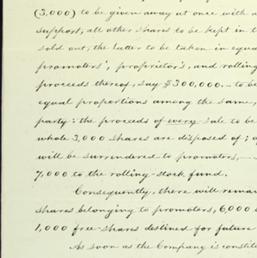 (3,000) to be given away at once with a
support, all other shares to be kept in t
sold out, the latter to be taken in equa
promoters', proprietor's, and rolling
proceeds thereof, say $300,000.- to be
equal proportions among the same,
party: the proceeds of every sale to be
whole 3,000 shares are disposed of; a
will be surrendered to promoters,—
7,000 to the rolling-stock fund.
Consequently, there will remai
shares belonging to promoters, 6,000 o
1,000 free shares destined for future
As soon as the Company is constitu